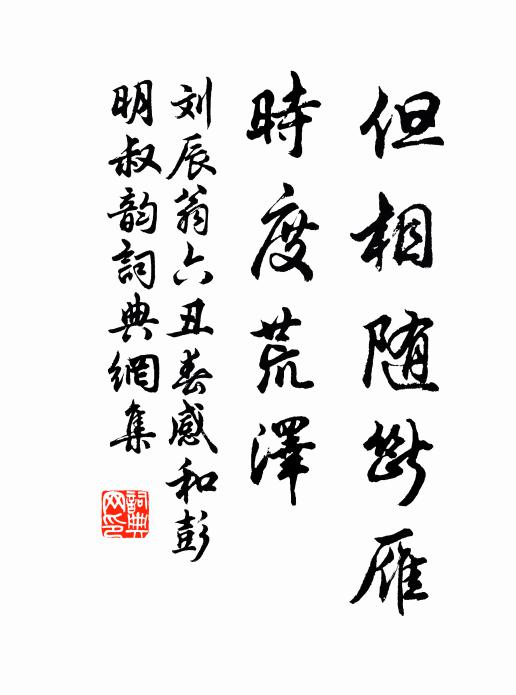 但相随断雁
時度荒澤
刘辰翁六丑春感和彭
明叔韵詞典網集
詞典网印